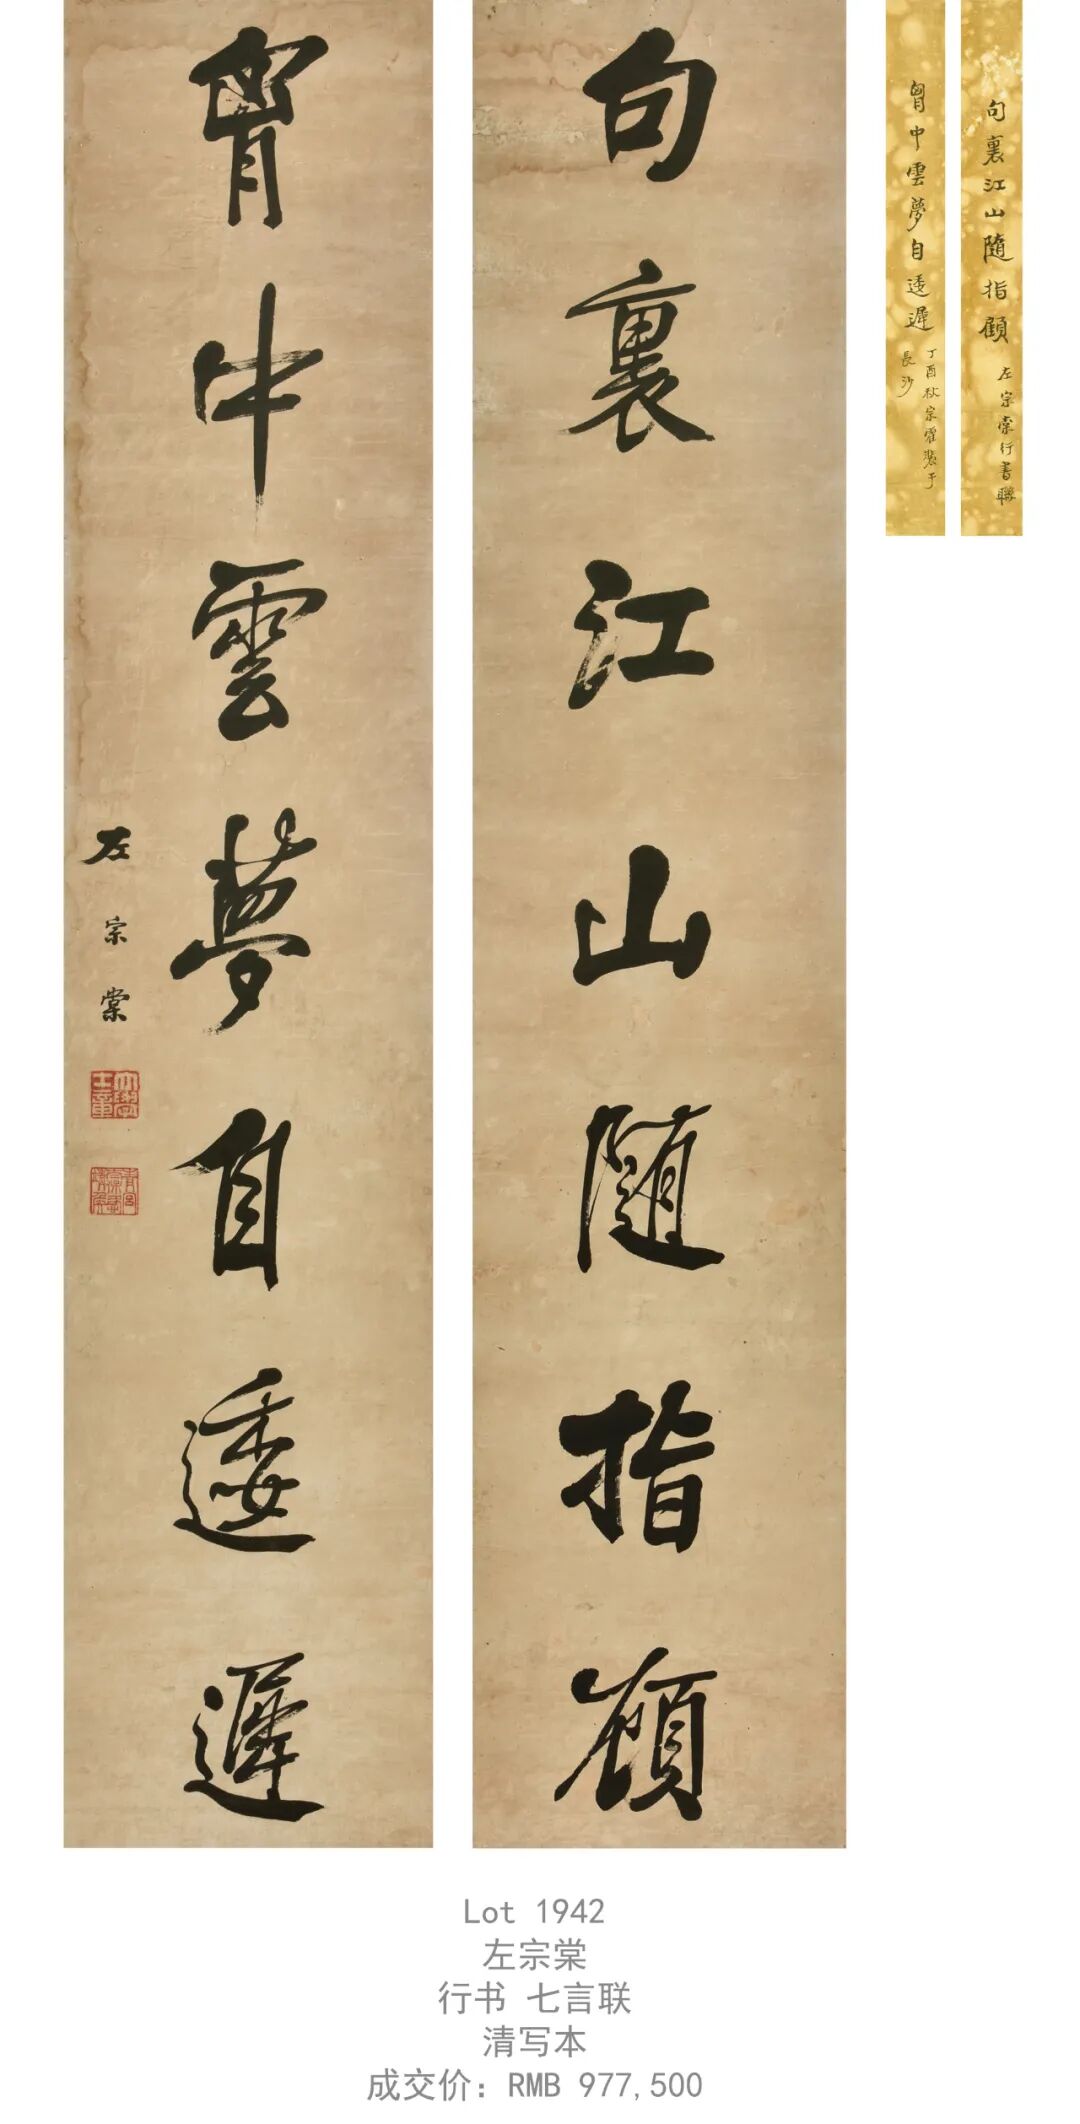 句裏江山隨指顧
胷中雲夢自逶遲
左宗棠
大學士章
青宮太保恪靖侯
句裏江山隨指顧
左宗棠行書聯
胷中雲夢自逶遲
丁酉秋宗霍裝于
長沙
Lot 1942
左宗棠
行书 七言联
清写本
成交价：RMB 977,500